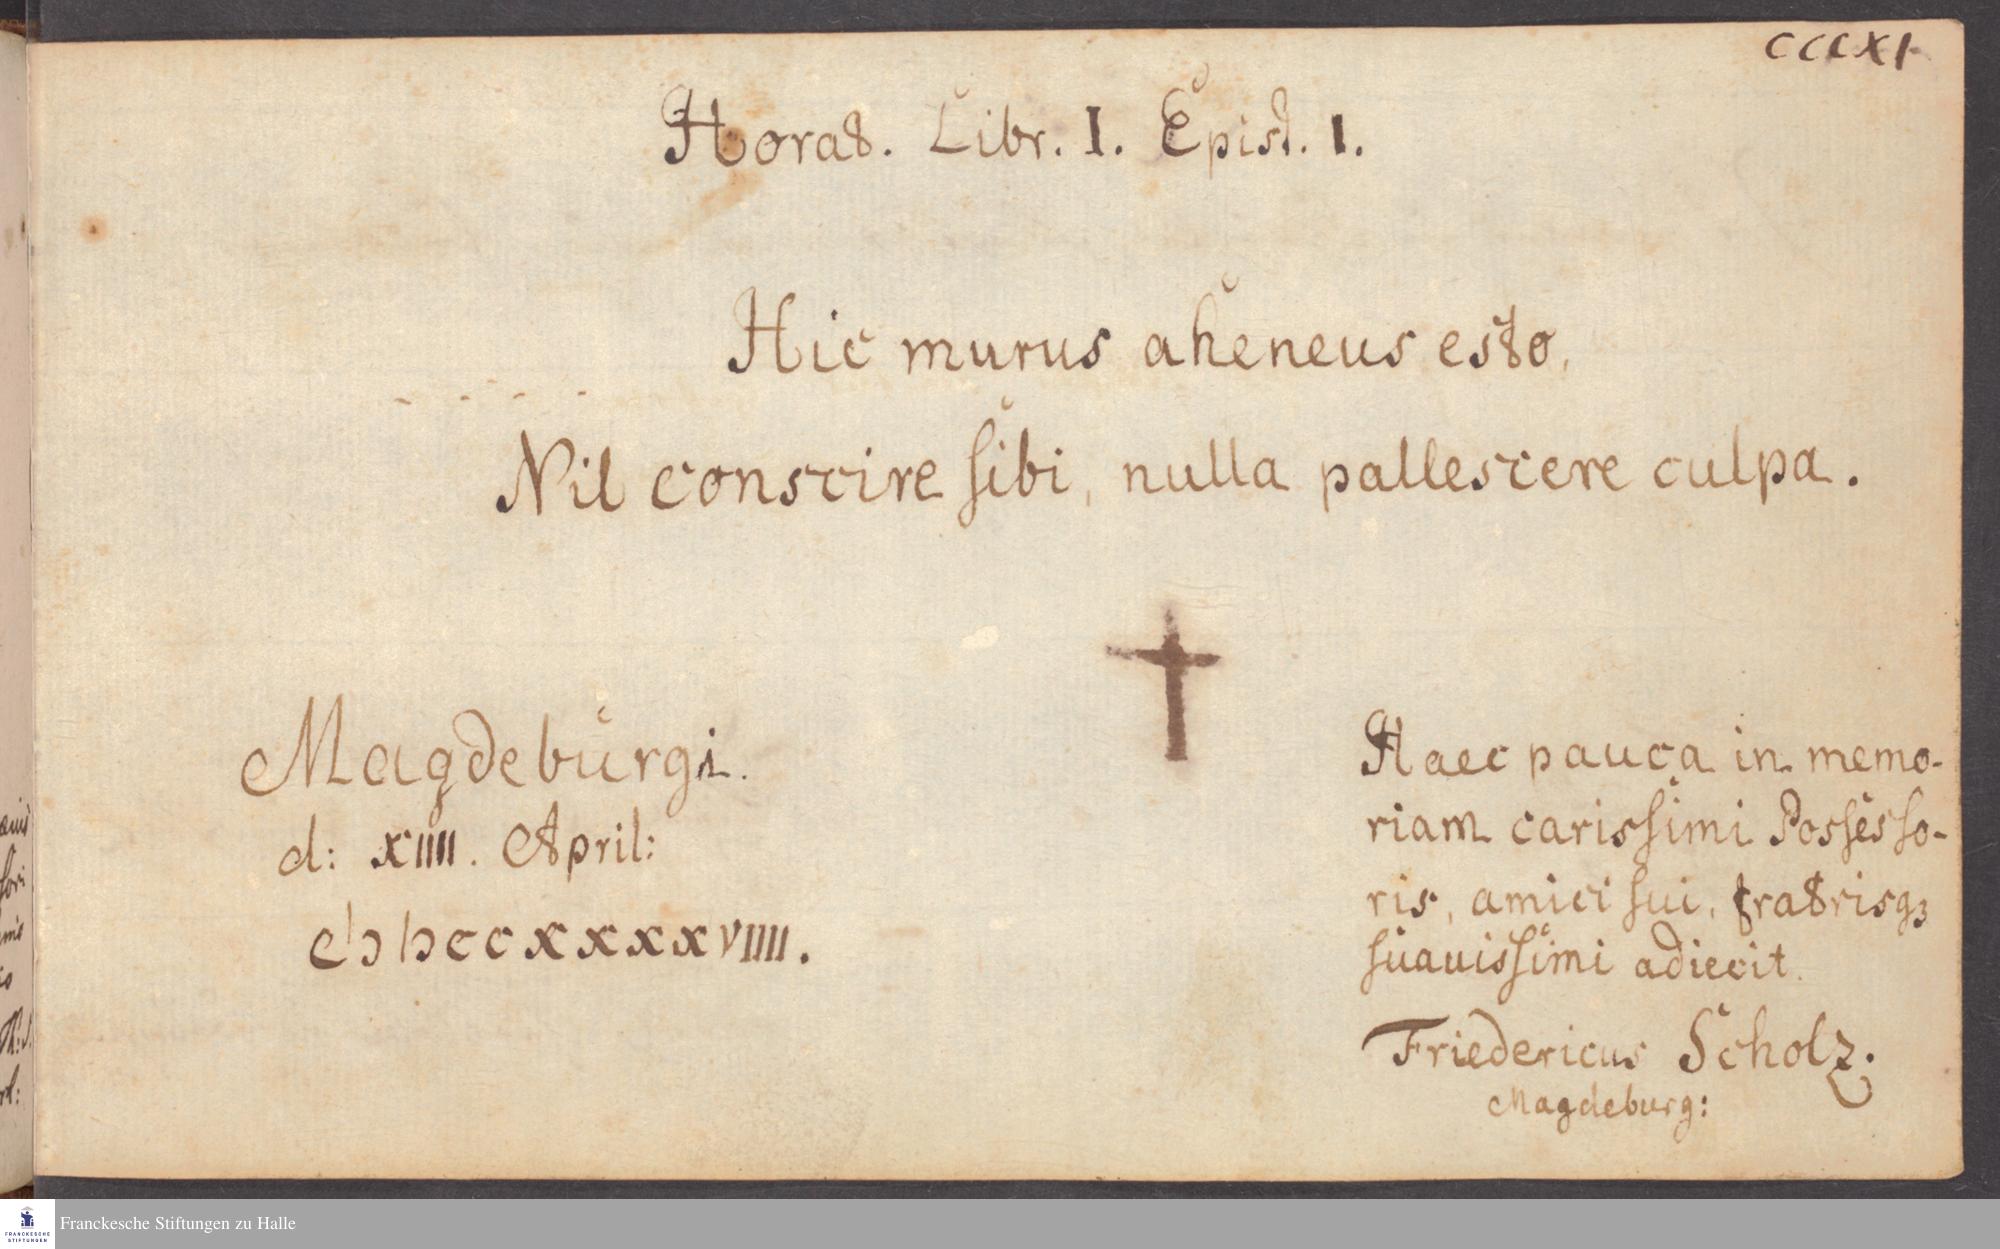 CCCXI
Horat. Libr. I. Epist. 1.
Hic murus aheneus esto,
Nil conscire sibi, nulla pallescere culpa.
Magdeburgi.
d: XIIII. April:
CIƆ IƆCCXXXXVIIII.
Haec pauca in memo-
riam carissimi Possesso-
ris, amici sui, fratrisqꝫ
suauissimi adiecit
Friedericus Scholz.
Magdeburg:
Franckesche Stiftungen zu Halle
FRANCKESCHE
STIFTUNGEN